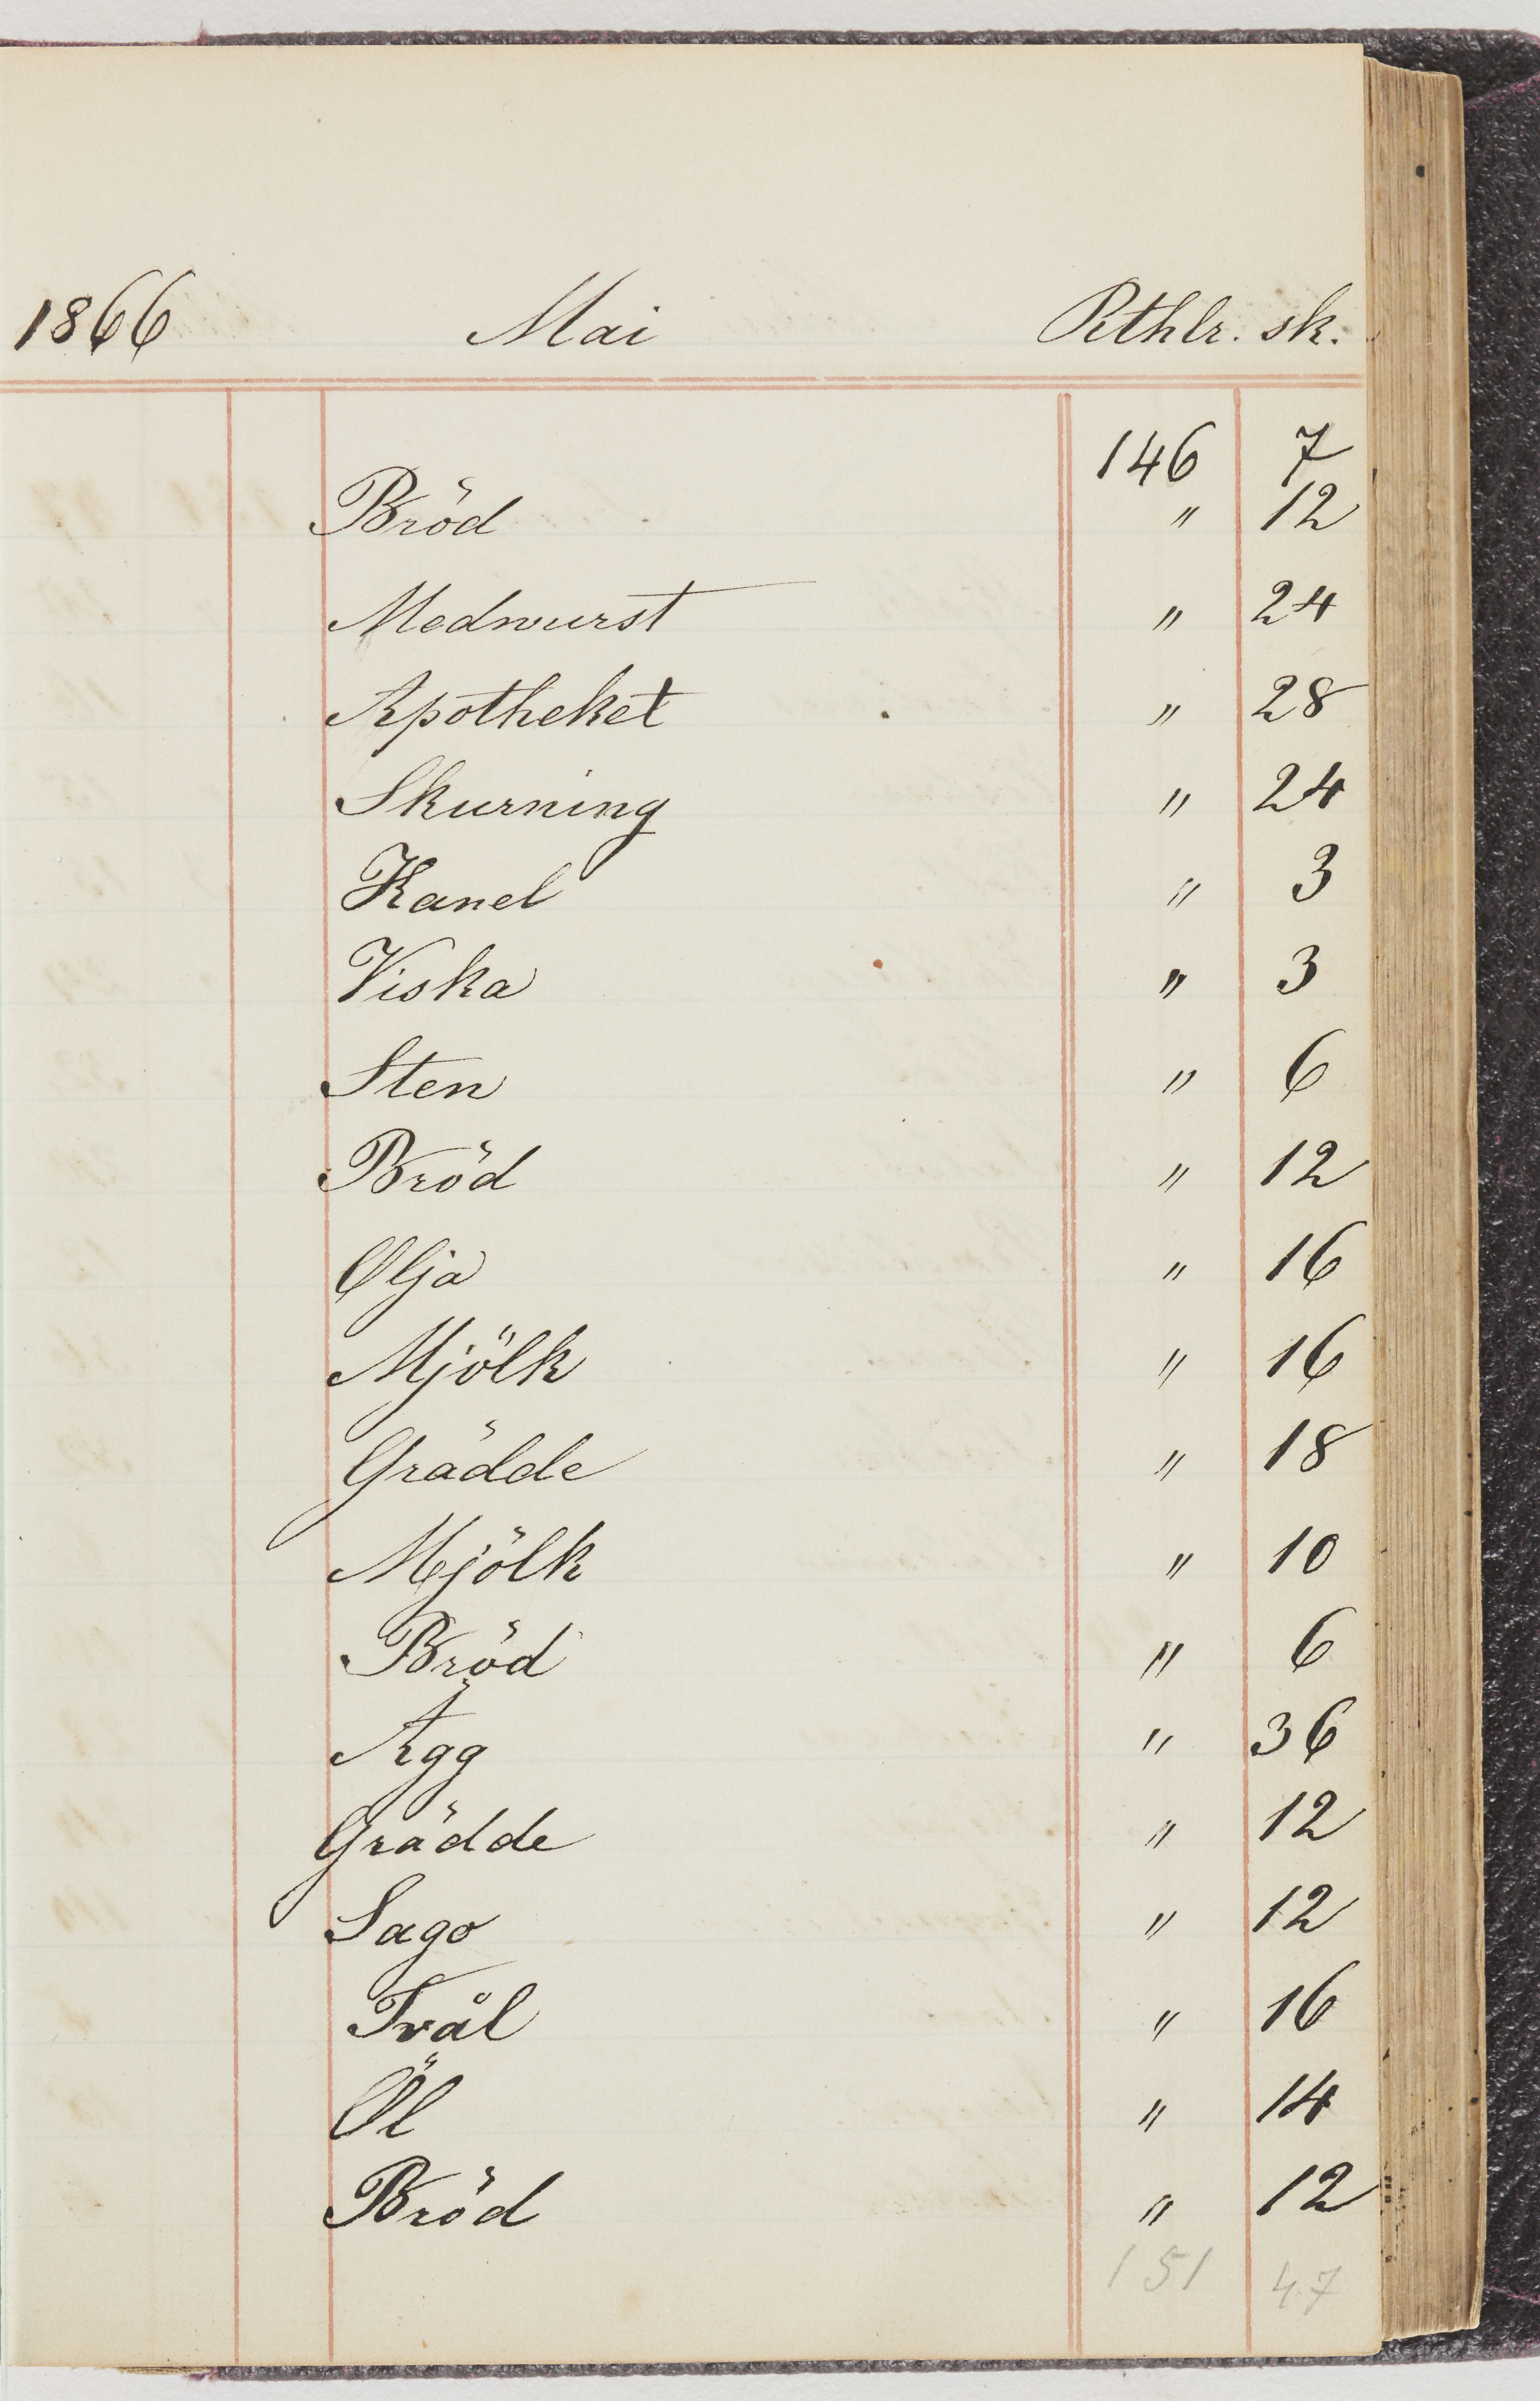 1866 Mai Rthlr. sk.
146 7
Bröd " 12
Medwurst " 24
Apotheket " 28
Skurning " 24
Kanel " 3
Viska " 3
Sten " 6
Bröd " 12
Olja " 16
Mjölk " 16
Grädde " 18
Mjölk " 10
Bröd " 6
Ägg " 36
Grädde " 12
Sago " 12
Tvål " 16
Öl " 14
Bröd " 12
151 47